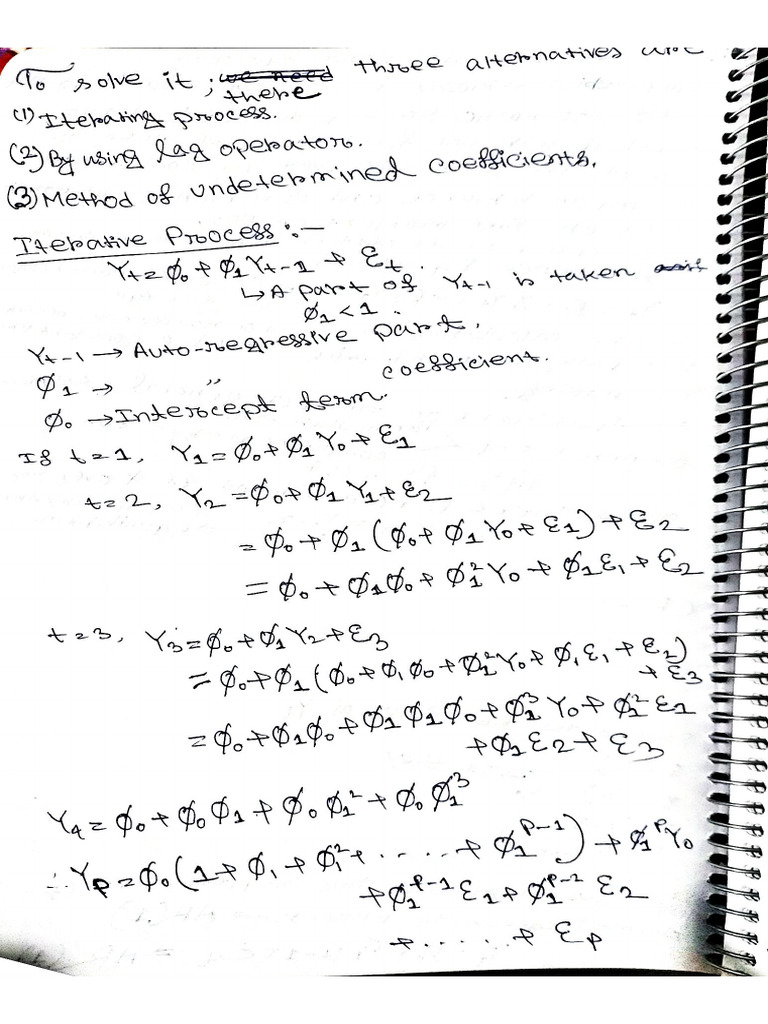 To solve it, there three alternatives are
(1) Iterating process.
(2) By using lag operator.
(3) Method of undetermined coefficients.
Iterative Process :-
Yt = ϕ0 + ϕ1 Yt-1 + Ɛt.
↳ A part of Yt-1 is taken
ϕ1 < 1.
Yt-1 → Auto-regressive part.
ϕ1 → " coefficient.
ϕ0 → Intercept term.
If t = 1, Y1 = ϕ0 + ϕ1 Y0 + Ɛ1
t = 2, Y2 = ϕ0 + ϕ1 Y1 + Ɛ2
= ϕ0 + ϕ1 (ϕ0 + ϕ1 Y0 + Ɛ1) + Ɛ2
= ϕ0 + ϕ1ϕ0 + ϕ1² Y0 + ϕ1Ɛ1 + Ɛ2
t = 3, Y3 = ϕ0 + ϕ1 Y2 + Ɛ3
= ϕ0 + ϕ1 (ϕ0 + ϕ1ϕ0 + ϕ1² Y0 + ϕ1Ɛ1 + Ɛ2) + Ɛ3
= ϕ0 + ϕ1ϕ0 + ϕ1ϕ1ϕ0 + ϕ1³ Y0 + ϕ1² Ɛ1
+ ϕ1Ɛ2 + Ɛ3
Y4 = ϕ0 + ϕ0ϕ1 + ϕ0ϕ1² + ϕ0ϕ1³
∴ Yp = ϕ0 (1 + ϕ1 + ϕ1² + ..... + ϕ1^p-1) + ϕ1^p Y0
+ ϕ1^p-1 Ɛ1 + ϕ1^p-2 Ɛ2
+ ..... + Ɛp